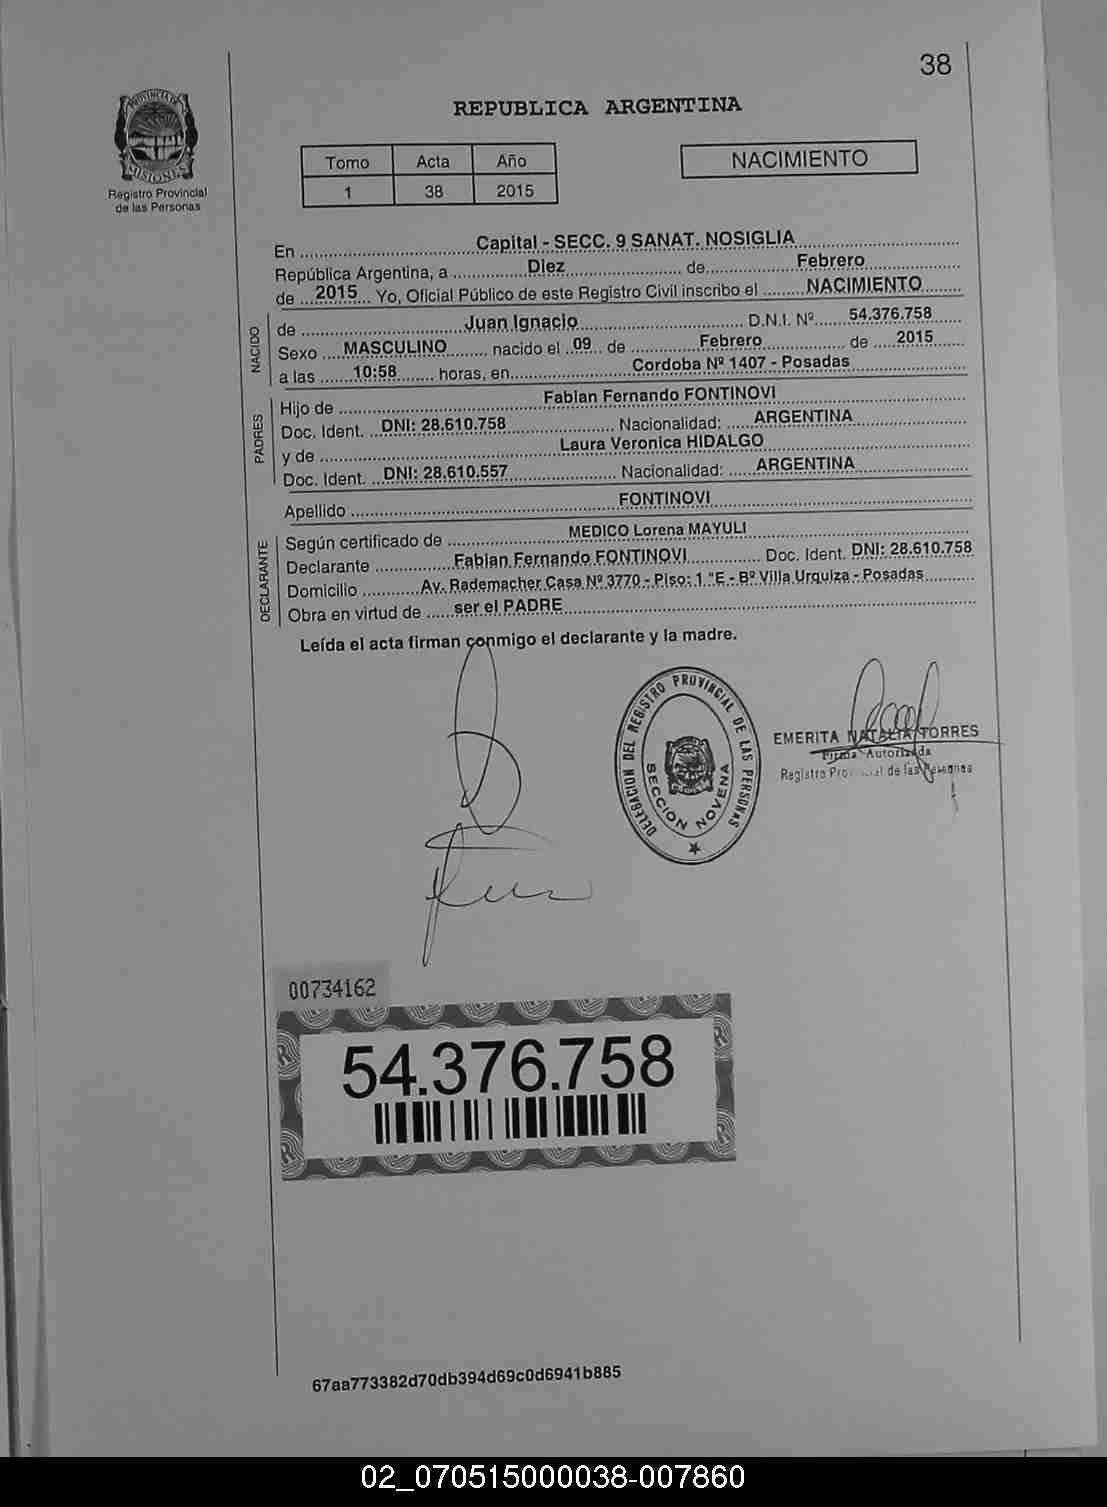 38
PROVINCIA DE
MISIONES
Registro Provincial
de las Personas
REPUBLICA ARGENTINA
Tomo Acta Año
1 38 2015
NACIMIENTO
En Capital - SECC. 9 SANAT. NOSIGLIA
República Argentina, a Diez de Febrero
de 2015 Yo, Oficial Público de este Registro Civil inscribo el NACIMIENTO
NACIDO
de Juan Ignacio D.N.I. Nº 54.376.758
Sexo MASCULINO nacido el 09 de Febrero de 2015
a las 10:58 horas, en Cordoba Nº 1407 - Posadas
PADRES
Hijo de Fabian Fernando FONTINOVI
Doc. Ident. DNI: 28.610.758 Nacionalidad: ARGENTINA
y de Laura Veronica HIDALGO
Doc. Ident. DNI: 28.610.557 Nacionalidad: ARGENTINA
Apellido FONTINOVI
DECLARANTE
Según certificado de MEDICO Lorena MAYULI
Declarante Fabian Fernando FONTINOVI Doc. Ident. DNI: 28.610.758
Domicilio Av. Rademacher Casa Nº 3770 - Piso: 1 "E - Bº Villa Urquiza - Posadas
Obra en virtud de ser el PADRE
Leída el acta firman conmigo el declarante y la madre.
DELEGACION DEL REGISTRO PROVINCIAL DE LAS PERSONAS
SECCION NOVENA
EMERITA NATALIA TORRES
Firma Autorizada
Registro Provincial de las Personas
00734162
54.376.758
67aa773382d70db394d69c0d6941b885
02_070515000038-007860